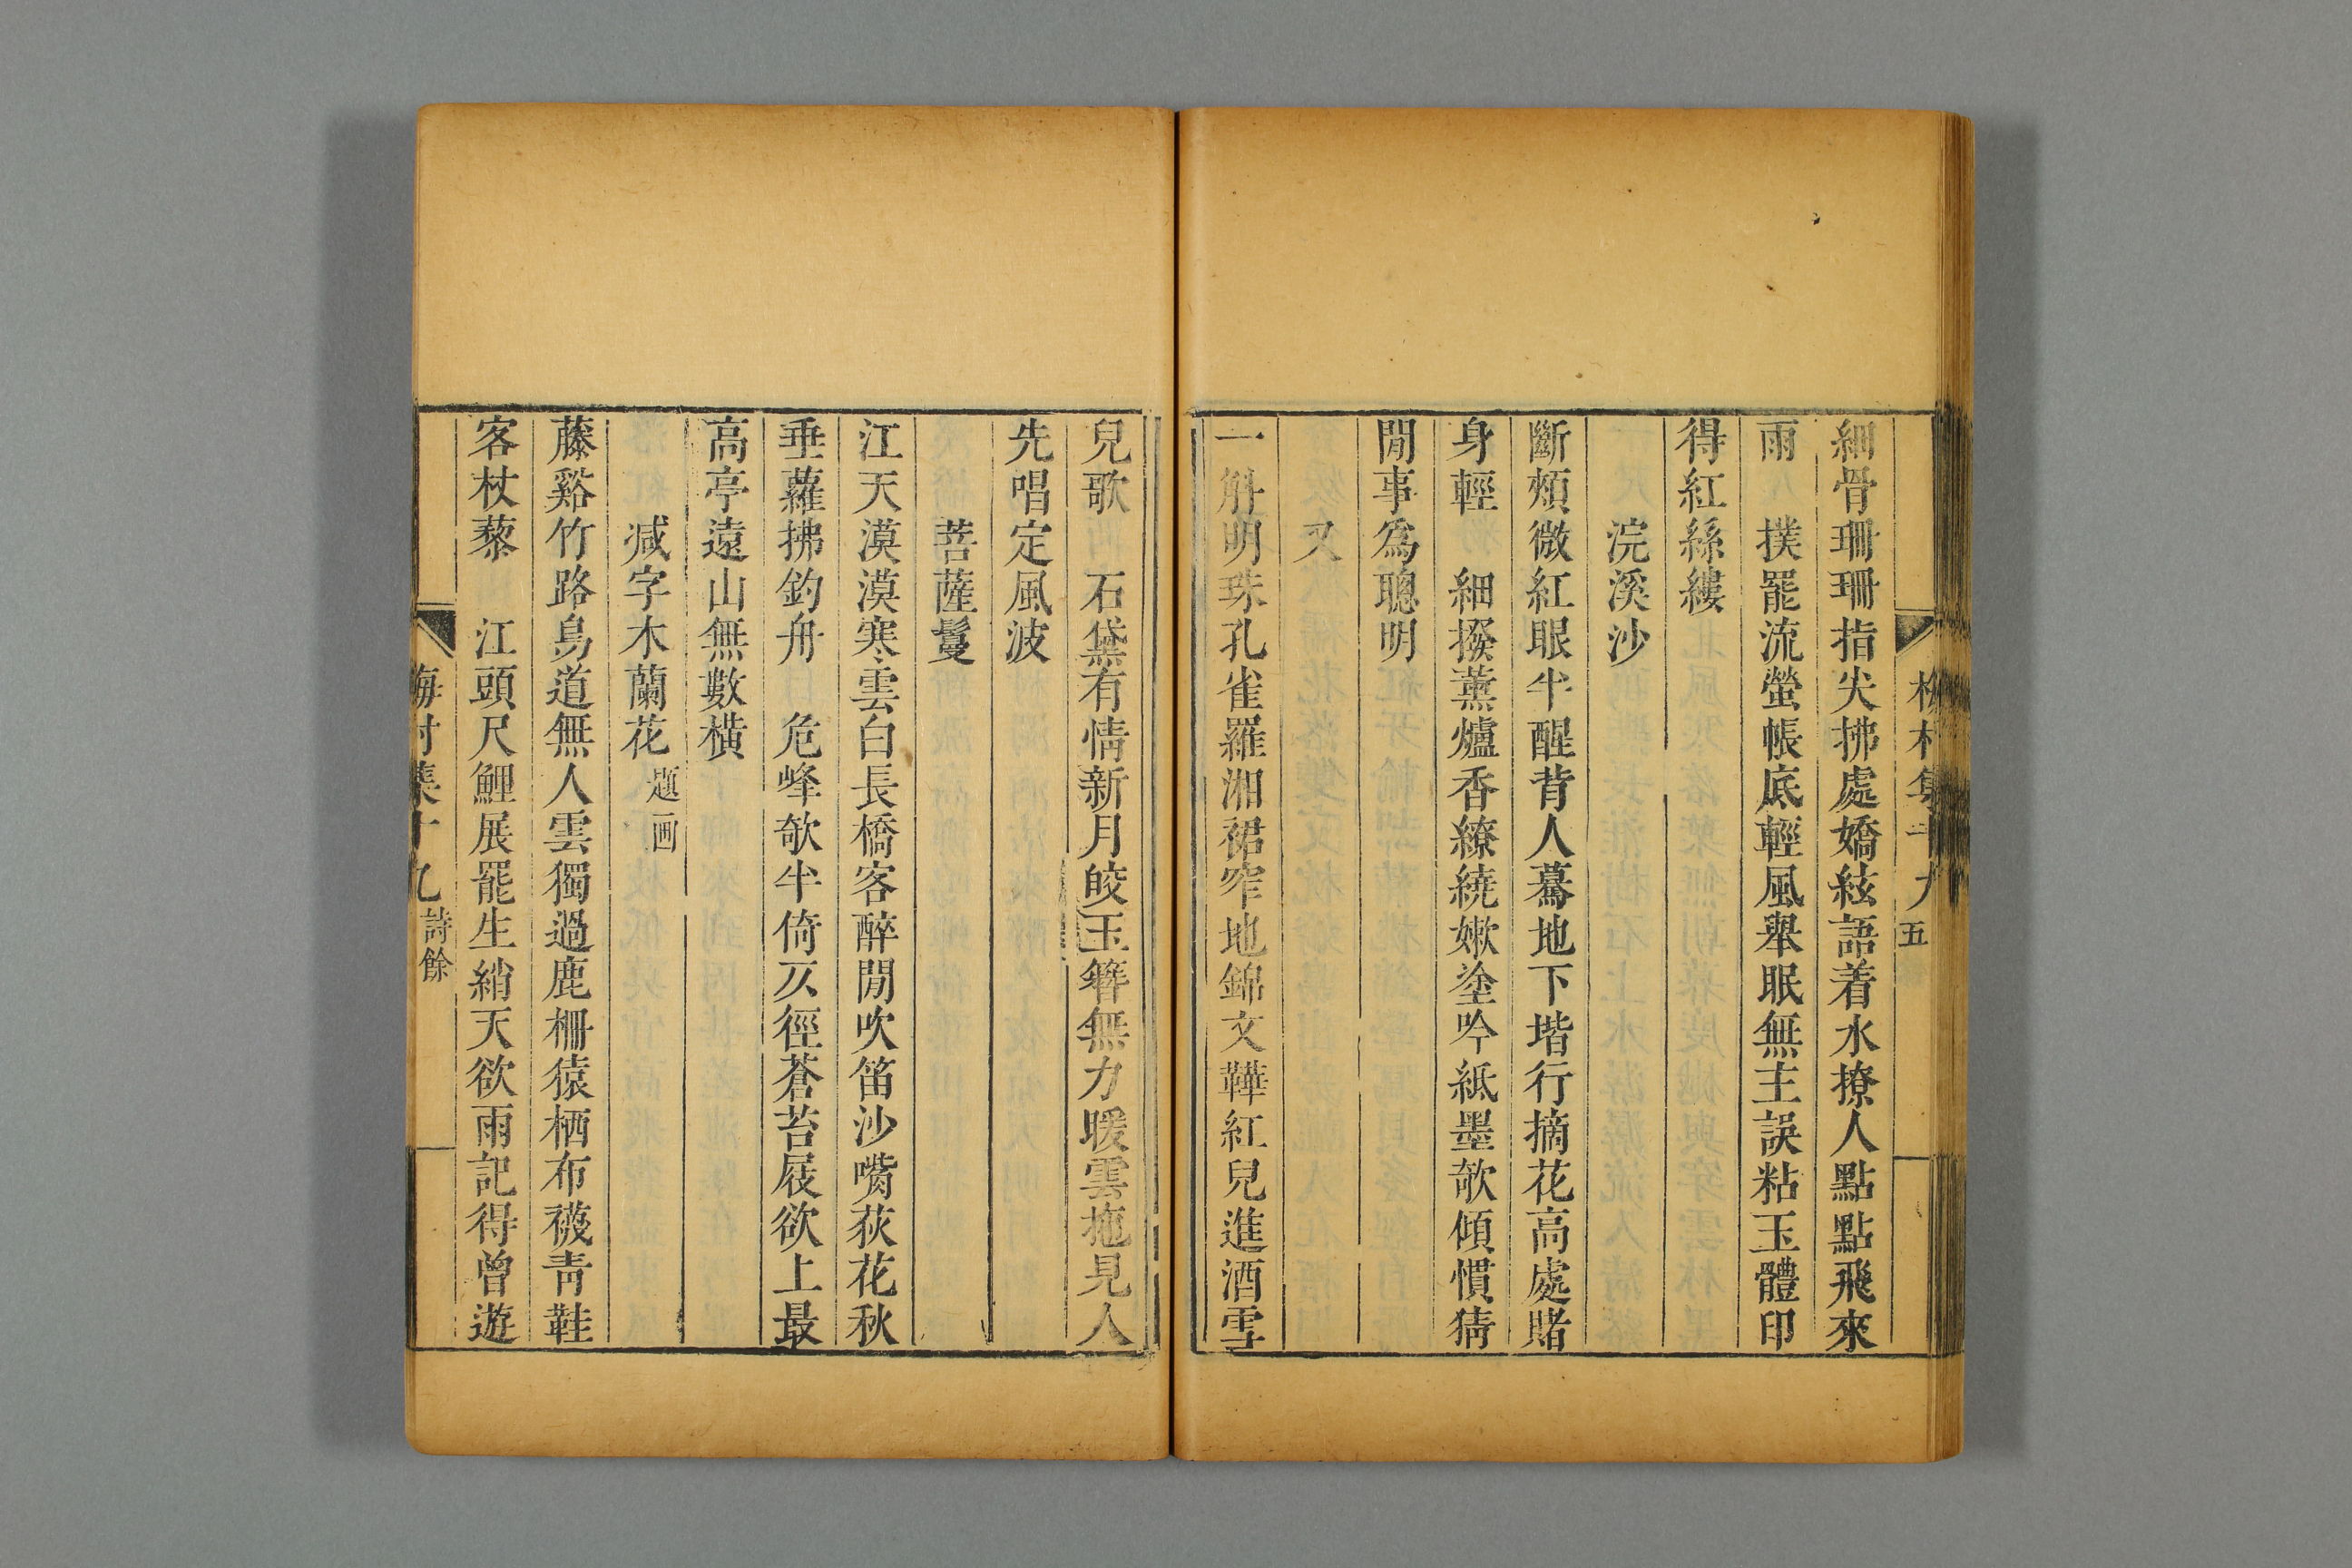 梅村集十九 五
細骨珊珊指尖拂處嬌絃語着水撩人點點飛來
雨 撲罷流螢帳底輕風舉眠無主誤粘玉體印
得紅絲縷
浣溪沙
斷頰微紅眼半醒背人驀地下堦行摘花高處賭
身輕 細撥薰爐香繚繞嫩塗吟紙墨欹傾慣猜
閒事爲聰明
又
一斛明珠孔雀羅湘裙窄地錦文鞾紅兒進酒雪
兒歌 石黛有情新月皎玉簪無力暖雲拖見人
先唱定風波
菩薩鬘
江天漠漠寒雲白長橋客醉閒吹笛沙嘴荻花秋
垂蘿拂釣舟 危峰欹半倚仄徑蒼苔屐欲上最
高亭遠山無數橫
减字木蘭花 题画
藤谿竹路鳥道無人雲獨過鹿柵猿栖布襪青鞋
客杖藜 江頭尺鯉展罷生綃天欲雨記得曾遊
梅村集十九 詩餘